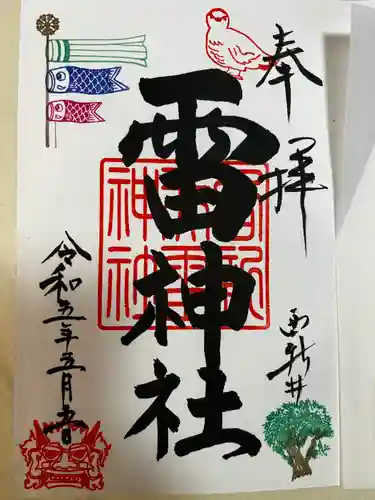 奉拝
西新井
雷神社
令和五年五月吉日